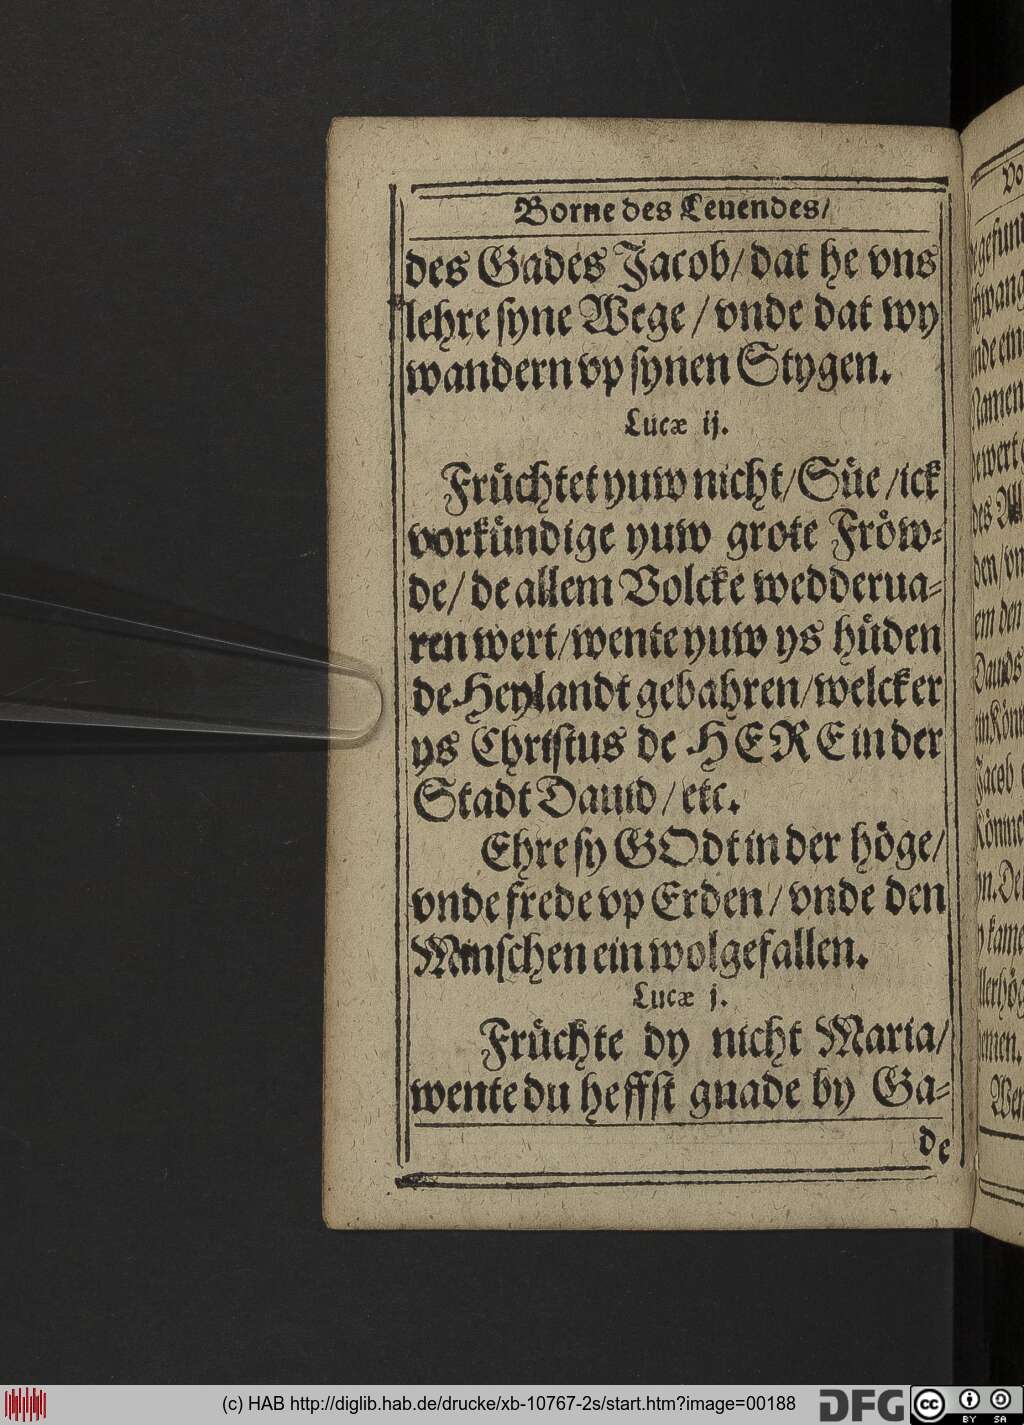 Borne des Leuendes/
des Gades Jacob/ dat he vns
lehre syne Wege / vnde dat wy
wandern vp synen Stygen.
Lucæ ij.
Früchtet yuw nicht/ Süe /ick
vorkündige yuw grote Fröw⸗
de/ de allem Volcke wedderua⸗
ren wert/ wente yuw ys hüden
de Heylandt gebahren/ welcker
ys Christus de HERE in der
Stadt Dauid/ etc.
Ehre sy GOdt in der höge/
vnde frede vp Erden/ vnde den
Minschen ein wolgefallen.
Lucæ j.
Früchte dy nicht Maria/
wente du heffst gnade by Ga⸗
de
(c) HAB http://diglib.hab.de/drucke/xb-10767-2s/start.htm?image=00188
DFG
cc
BY SA